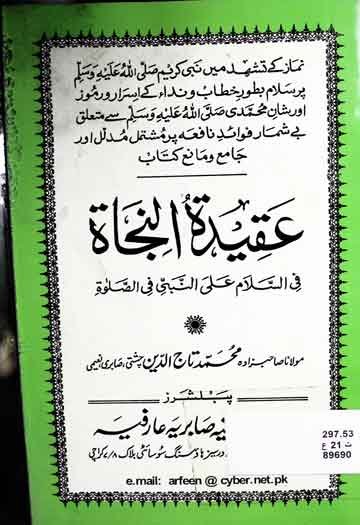 نماز کے تشہد میں نبی کریم صلی اللہ علیہ وسلم
پر سلام بطور خطاب و نداء کے اسرار و رموز
اور شانِ محمدی صلی اللہ علیہ وسلم سے متعلق
بے شمار فوائد نافعہ پر مشتمل مدلل اور
جامع و مانع کتاب
عقیدۃ النجاۃ
فی السلام علی النبی فی الصلوٰۃ
مولانا صاحبزادہ محمد تاج الدین چشتی، صابری نعیمی
پبلشرز
یہ صابریہ عارفیہ
سوسائٹی بلاک ۷/۸ کراچی
e.mail: arfeen @ cyber.net.pk
297.53
ت 21 ع
89690